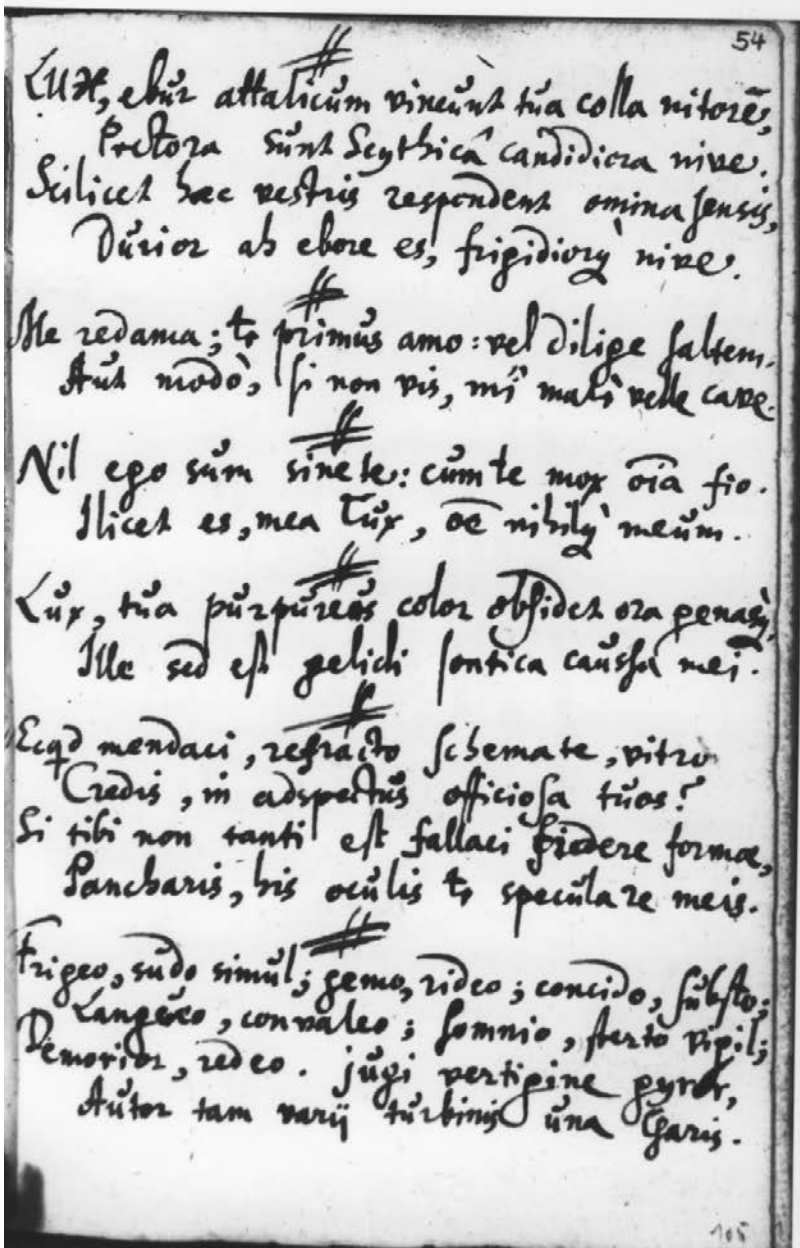 54
#
LUX, ebur attalicum vincunt tua colla nitorē,
Pectora sunt Scythicâ candidiora nive.
Scilicet haec vestris respondent omina sensis,
Durior ab ebore es, frigidiorq̀ nive.
#
Me redama; te primus amo: vel dilige saltem.
Aut modò, si non vis, mî malè velle cave.
#
Nil ego sum sine te: cum te mox oīa fio.
Ilicet es, mea Lux, oē nihilq̀ meum.
#
Lux, tua purpureus color obsidet ora genasq̀,
Ille sed est gelidi sontica caussa mei.
#
Ecqd mendaci, refracto schemate, vitro
Credis, in adspectus officiosa tuos?
Si tibi non tanti est fallaci fidere formae,
Pancharis, his oculis te speculare meis.
#
Frigeo, sudo simul; gemo, rideo; concido, substo;
Langueo, convaleo; somnio, sterto vigil;
Demorior, redeo. jugi vertigine gyror,
Autor tam varij turbinis una Charis.
105